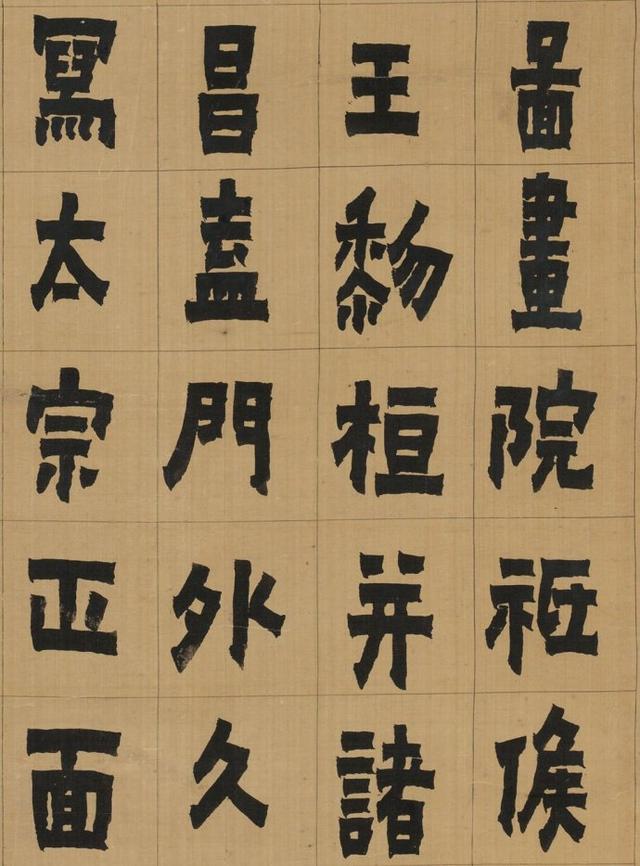 啚畫院祗候
王黎桓并諸
昌盍門外久
寫太宗正面